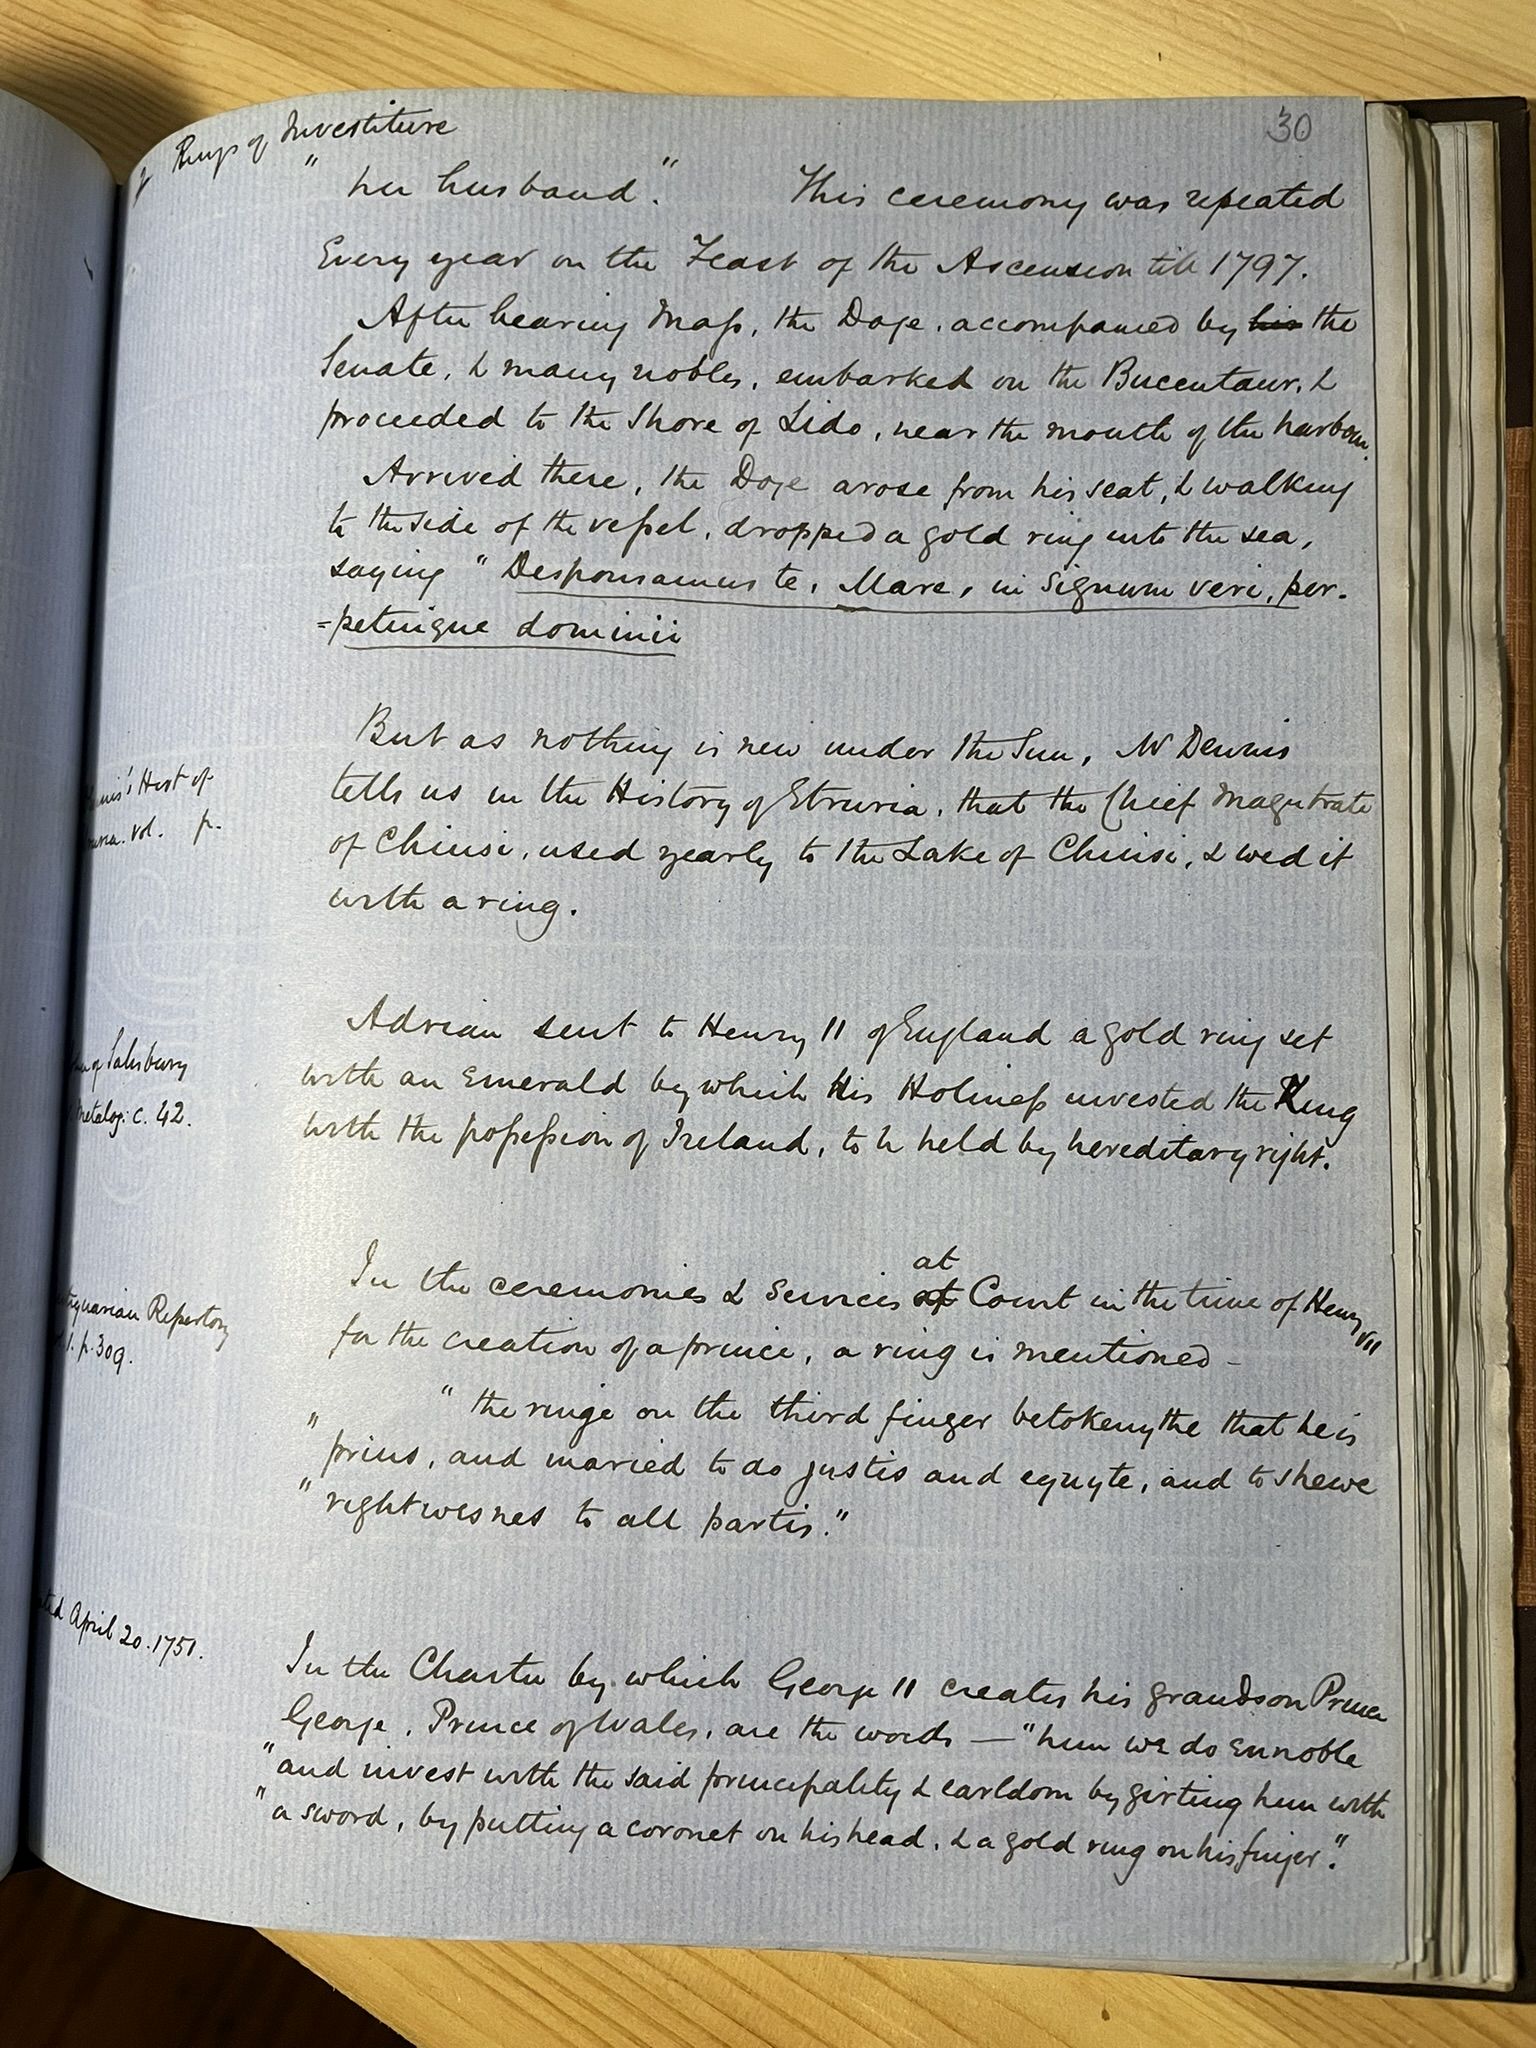 Rings of Investiture
30
" her husband." This ceremony was repeated
Every year on the Feast of the Ascension till 1797.
After hearing Mass, the Doge, accompanied by his the
Senate, & many nobles, embarked on the Bucentaur, &
proceeded to the Shore of Lido, near the mouth of the harbour.
Arrived there, the Doge arose from his seat, & walking
to the side of the vessel, dropped a gold ring into the sea,
saying "Desponsamus te, Mare, in signum veri, per-
=petuique dominii
But as nothing is new under the Sun, Mr Dennis
tells us in the History of Etruria, that the Chief Magistrate
of Chiusi, used yearly to the Lake of Chiusi, & wed it
with a ring.
Hist of
vol. p.
Adrian sent to Henry II of England a gold ring set
with an Emerald by which His Holiness invested the King
with the possession of Ireland, to be held by hereditary right.
of Salisbury
Metalog. c. 42.
In the ceremonies & Services of at Court in the time of Henry VII
for the creation of a prince, a ring is mentioned -
" the ringe on the third finger betokenythe that he is
" prins, and maried to do justis and equyte, and to shewe
" rightwesnes to all partis."
Repertory
1. p. 309.
In the Charter by which George II creates his grandson Prince
George, Prince of Wales, are the words — "him we do ennoble
" and invest with the said principality & earldom by girting him with
" a sword, by putting a coronet on his head, & a gold ring on his finger."
April 20. 1751.